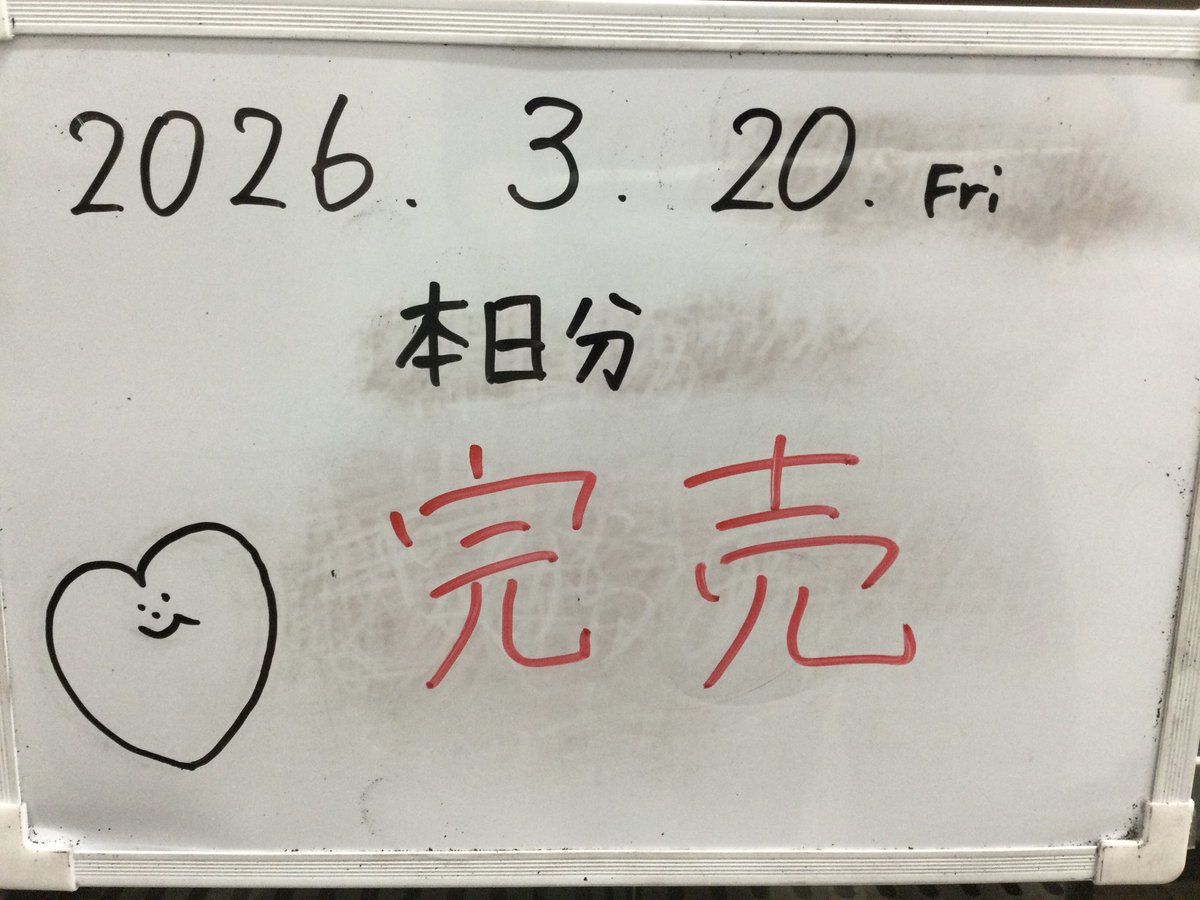 2026. 3. 20. Fri
本日分
完売